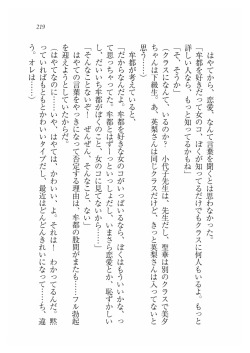 219
　はやてから、恋愛、なんて言葉を聞くとは思わなかった。
「牟都を好きだって女のコ、ぼくが知ってるだけでもクラスに何人もいるよ。もっと
詳しい人なら、もっと知ってるかもね」
「そ、そうか」
「クラスになんて、いるのか？　小代子先生は、先生だし、聖華は別のクラスで美夕
ちゃんは下級生。あ、英梨さんは同じクラスだけど、きっと英梨さんは入ってないと
思う……」
　牟都が考えていると、
「だからなんだよ。牟都を好きな女のコがいっぱいるなら、ぼくはもういいかな、っ
て思っちゃってたんだし、いまとはずーっといっしょだし、いまさら恋愛とか、恥ずかしい
し。だいいち牟都がぼくのこと、女のコに見てないから……」
「そんなことないぞ。ぜんぜん、そんなこと、ない」
　はやての言葉をやっきになって否定する理由は、牟都の股間がまたも……フル勃起
を迎えようとしていたからだ。
「はやてなのに……いや、はやては、かわいい。よ。それは……わかってるんだ。黙
っていればもともとかわいいタイプだし、最近はどんどんきれいになって……も、違
う。オレは……」